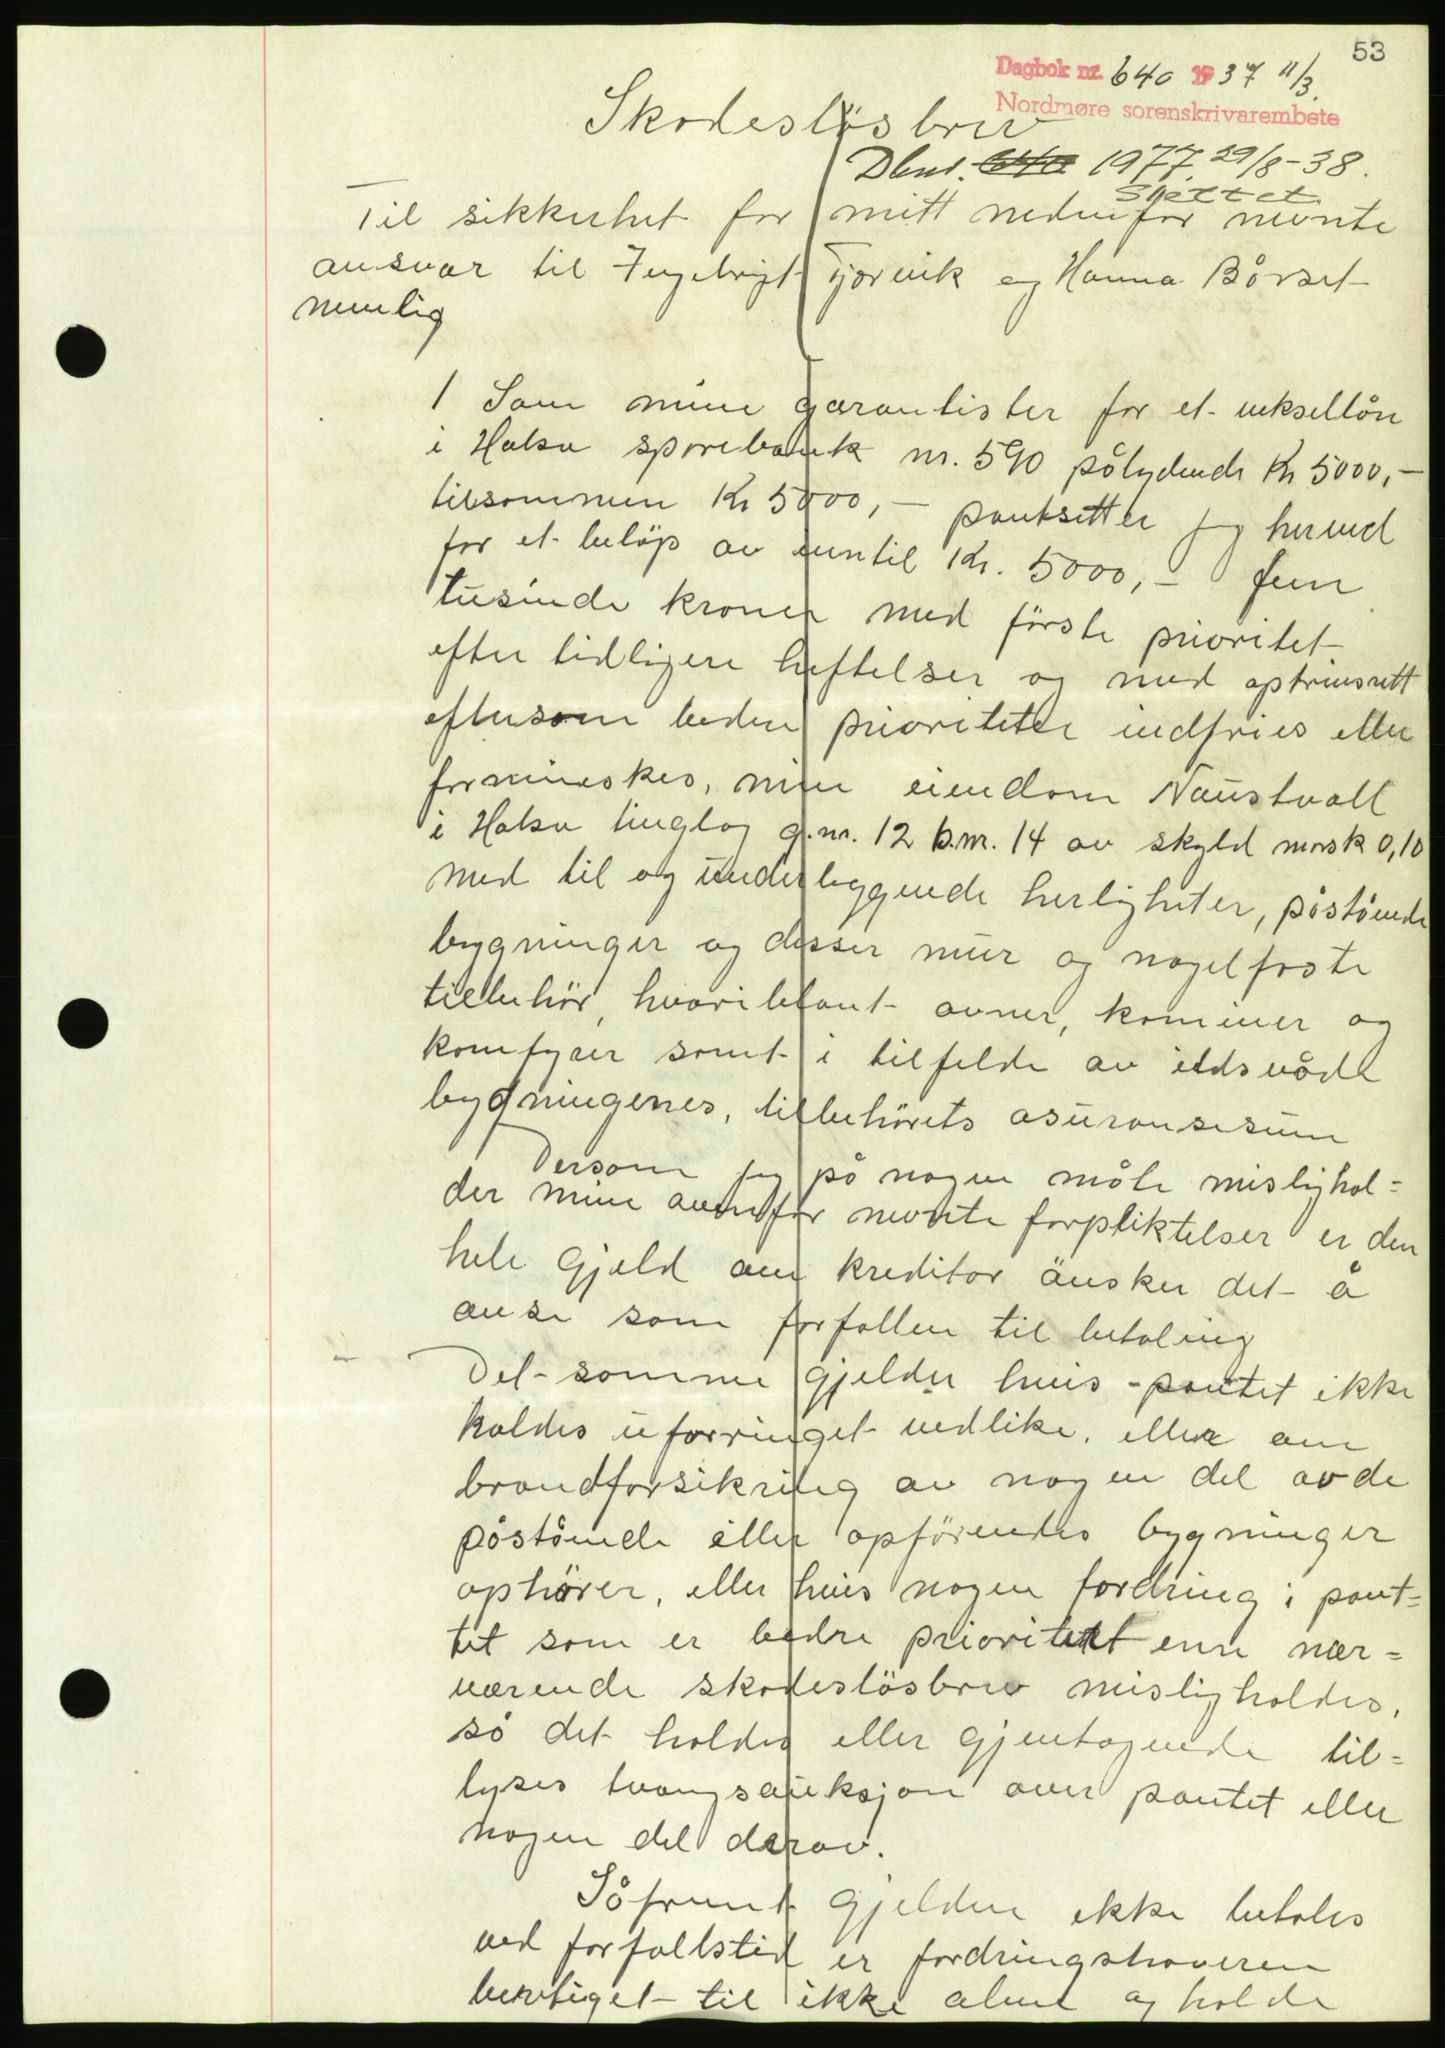 53
Dagbok nr. 640 1937 11/3.
Nordmøre sorenskrivarembete
Skadesløsbrev
Dbnr. 640 1977. 29/8-38.
Slettet
Til sikkerhet for mitt nedenfor nevnte
ansvar til Ingebrigt Tjørvik og Hanna Bårset
nemlig
1 Som mine garantister for et veksellån
i Halsa sparebank nr. 590 pålydende Kr 5000,-
tilsammen Kr 5000,- pantsetter jeg herved
for et beløp av inntil Kr. 5000,- fem
tusinde kroner med første prioritet
efter tidligere heftelser og med optrinsrett
eftersom bedre prioriteter indfries eller
forminskes, min eiendom Naustvall
i Halsa tinglag g.nr. 12 b.nr. 14 av skyld mark 0,10
med til og underliggende herligheter, påstående
bygninger og disses mur og nagelfaste
tilbehør, hvoriblant ovner, kominer og
komfyrer samt i tilfelde av ildsvåde
bygningenes, tilbehørets asuransesum
Dersom jeg på nogen måte mislighol=
der mine ovenfor nevnte forpliktelser er den
hele gjeld om kreditor ønsker det å
anse som forfallen til betaling
Det samme gjelder hvis pantet ikke
holdes uforringet vedlike, eller om
brandforsikring av nogen del av de
påstående eller opførendes bygninger
ophører, eller hvis nogen fordring i pant=
tet som er bedre prioritert enn nær=
værende skadesløsbrev misligholdes,
så det holdes eller gjentagende til=
lyses tvangsauksjon over pantet eller
nogen del derav.
Såfremt gjelden ikke betales
ved forfallstid er fordringshaveren
berettiget til ikke alene og holde